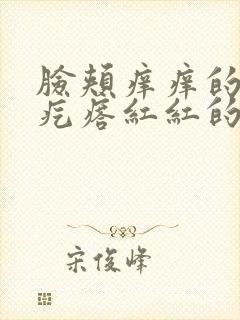 臉頰痒痒的
疙瘩紅紅的
宋俊峰